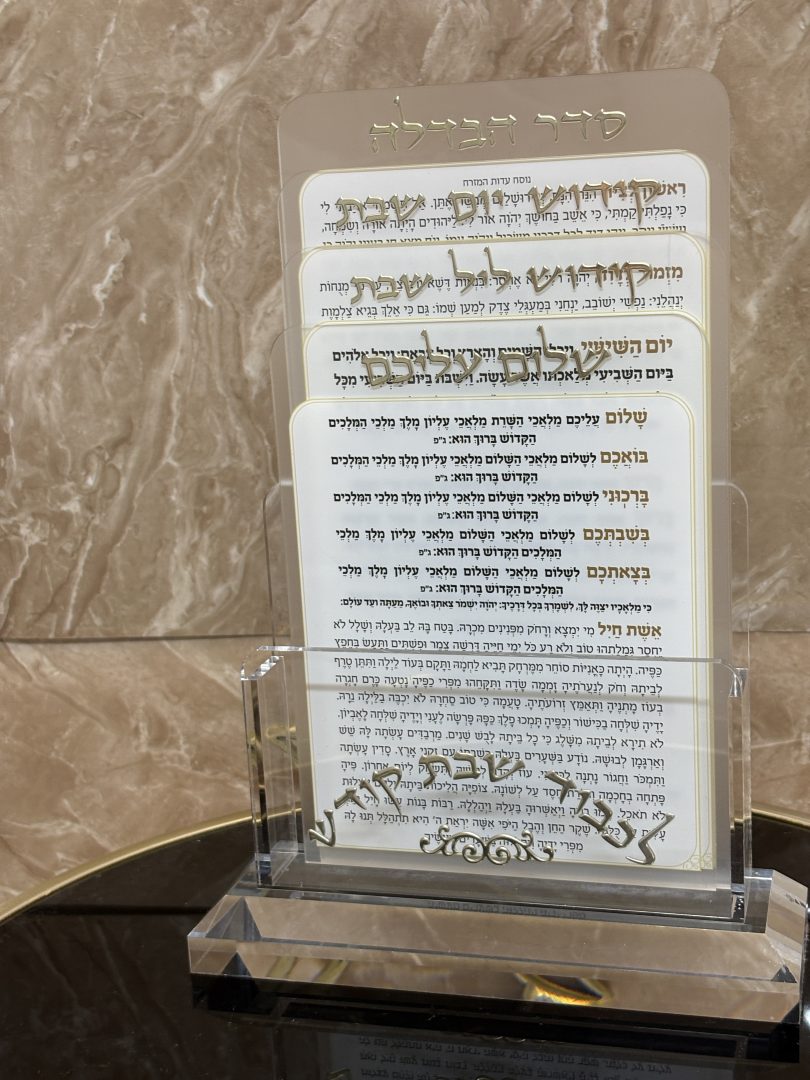 סדר הבדלה
נוסח עדות המזרח
כִּי נָפַלְתִּי קַמְתִּי, כִּי אֵשֵׁב בַּחוֹשֶׁךְ יְהֹוָה אוֹר לִי. לַיְּהוּדִים הָיְתָה אוֹרָה וְשִׂמְחָה,
קידוש יום שבת
יְנַהֲלֵנִי: נַפְשִׁי יְשׁוֹבֵב, יַנְחֵנִי בְּמַעְגְּלֵי צֶדֶק לְמַעַן שְׁמוֹ: גַּם כִּי אֵלֵךְ בְּגֵיא צַלְמָוֶת
קידוש ליל שבת
יוֹם הַשִּׁישִּׁי
בַּיּוֹם הַשְּׁבִיעִי מְלַאכְתּוֹ אֲשֶׁר עָשָׂה. וַיִּשְׁבֹּת בַּיּוֹם הַשְּׁבִיעִי מִכָּל
שלום עליכם
שָׁלוֹם עֲלֵיכֶם מַלְאֲכֵי הַשָּׁרֵת מַלְאֲכֵי עֶלְיוֹן מֶלֶךְ מַלְכֵי הַמְּלָכִים
הַקָּדוֹשׁ בָּרוּךְ הוּא: ג"פ
בּוֹאֲכֶם לְשָׁלוֹם מַלְאֲכֵי הַשָּׁלוֹם מַלְאֲכֵי עֶלְיוֹן מֶלֶךְ מַלְכֵי הַמְּלָכִים
הַקָּדוֹשׁ בָּרוּךְ הוּא: ג"פ
בָּרְכוּנִי לְשָׁלוֹם מַלְאֲכֵי הַשָּׁלוֹם מַלְאֲכֵי עֶלְיוֹן מֶלֶךְ מַלְכֵי הַמְּלָכִים
הַקָּדוֹשׁ בָּרוּךְ הוּא: ג"פ
בְּשִׁבְתְּכֶם לְשָׁלוֹם מַלְאֲכֵי הַשָּׁלוֹם מַלְאֲכֵי עֶלְיוֹן מֶלֶךְ מַלְכֵי
הַמְּלָכִים הַקָּדוֹשׁ בָּרוּךְ הוּא: ג"פ
בְּצֵאתְכֶם לְשָׁלוֹם מַלְאֲכֵי הַשָּׁלוֹם מַלְאֲכֵי עֶלְיוֹן מֶלֶךְ מַלְכֵי
הַמְּלָכִים הַקָּדוֹשׁ בָּרוּךְ הוּא: ג"פ
כִּי מַלְאָכָיו יְצַוֶּה לָּךְ, לִשְׁמָרְךָ בְּכָל דְּרָכֶיךָ: יְהֹוָה יִשְׁמָר צֵאתְךָ וּבוֹאֶךָ, מֵעַתָּה וְעַד עוֹלָם:
אֵשֶׁת חַיִל מִי יִמְצָא וְרָחֹק מִפְּנִינִים מִכְרָהּ. בָּטַח בָּהּ לֵב בַּעְלָהּ וְשָׁלָל לֹא
יֶחְסָר. גְּמָלַתְהוּ טוֹב וְלֹא רָע כֹּל יְמֵי חַיֶּיהָ. דָּרְשָׁה צֶמֶר וּפִשְׁתִּים וַתַּעַשׂ בְּחֵפֶץ
כַּפֶּיהָ. הָיְתָה כָּאֳנִיּוֹת סוֹחֵר מִמֶּרְחָק תָּבִיא לַחְמָהּ. וַתָּקָם בְּעוֹד לַיְלָה וַתִּתֵּן טֶרֶף
לְבֵיתָהּ וְחֹק לְנַעֲרֹתֶיהָ. זָמְמָה שָׂדֶה וַתִּקָּחֵהוּ מִפְּרִי כַפֶּיהָ נָטְעָה כָּרֶם. חָגְרָה
בְעוֹז מָתְנֶיהָ וַתְּאַמֵּץ זְרוֹעֹתֶיהָ. טָעֲמָה כִּי טוֹב סַחְרָהּ לֹא יִכְבֶּה בַּלַּיְלָה נֵרָהּ.
יָדֶיהָ שִׁלְּחָה בַכִּישׁוֹר וְכַפֶּיהָ תָּמְכוּ פָלֶךְ. כַּפָּהּ פָּרְשָׂה לֶעָנִי וְיָדֶיהָ שִׁלְּחָה לָאֶבְיוֹן.
לֹא תִירָא לְבֵיתָהּ מִשָּׁלֶג כִּי כָל בֵּיתָהּ לָבֻשׁ שָׁנִים. מַרְבַדִּים עָשְׂתָה לָּהּ שֵׁשׁ
וְאַרְגָּמָן לְבוּשָׁהּ. נוֹדָע בַּשְּׁעָרִים בַּעְלָהּ בְּשִׁבְתּוֹ עִם זִקְנֵי אָרֶץ. סָדִין עָשְׂתָה
וַתִּמְכֹּר וַחֲגוֹר נָתְנָה
לְיוֹם אַחֲרוֹן. פִּיהָ
פָּתְחָה בְחָכְמָה
חֶסֶד עַל לְשׁוֹנָהּ. צוֹפִיָּה הֲלִיכוֹת בֵּיתָהּ
לֹא תֹאכֵל.
וַיְאַשְּׁרוּהָ בַּעְלָהּ וַיְהַלְלָהּ. רַבּוֹת בָּנוֹת עָשׂוּ חָיִל
שֶׁקֶר הַחֵן וְהֶבֶל הַיֹּפִי אִשָּׁה יִרְאַת ה' הִיא תִתְהַלָּל. תְּנוּ לָהּ
מִפְּרִי יָדֶיהָ
לכבוד שבת קודש